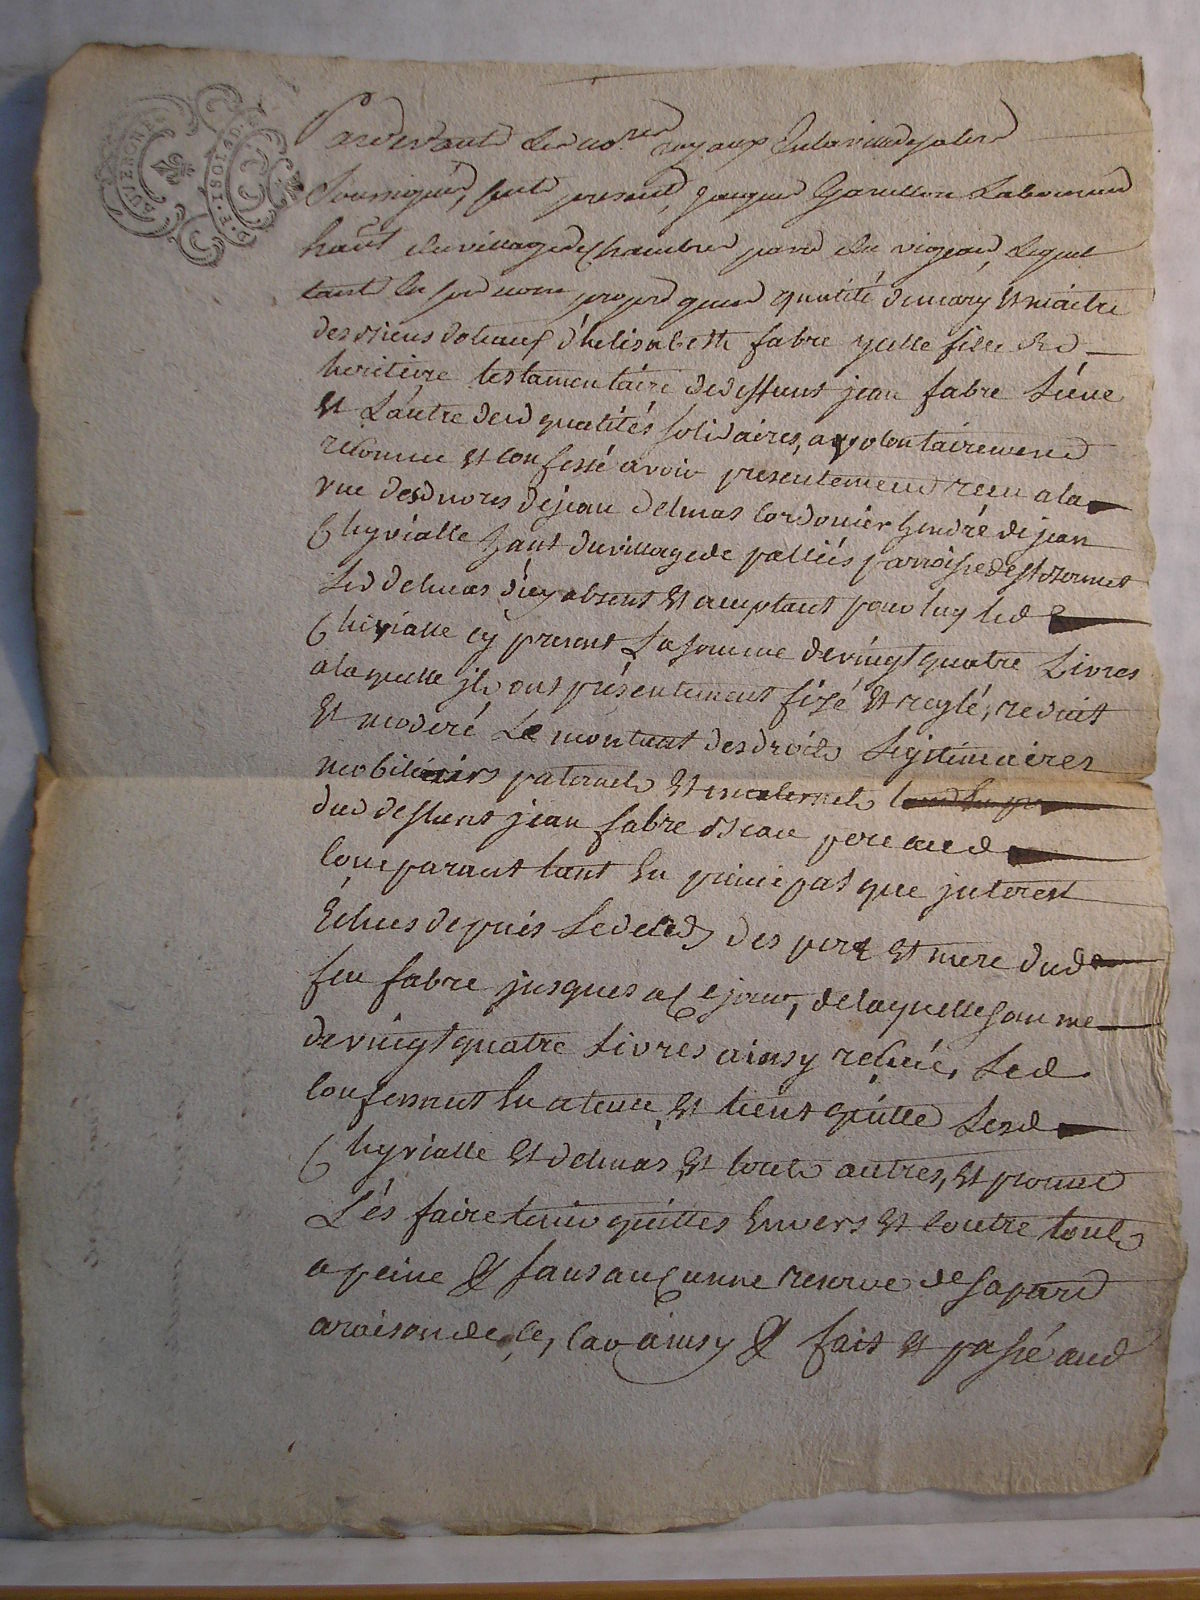 AUVERGNE
Pardevant Les no.res royaux En la ville de salers
soussignés, fut present, Jacques Garellon Laboureur
ha͠nt du village de Chambre parr.e du vigean, Lequel
tant En son nom propre qu'en qualité de mary Et maitre
des Biens dotaux d'helisabeth fabre ycelle fille Et
heritiere testamentaire de deffunt jean fabre L'une
Et L'autre desd qualités solidaires, a volontairement
reconnu Et confessé avoir presentement recu a la
vue desd nores de jean delmas cordonier Gendre de jean
Chyrialle hant du village de palliés parroisse de st bonnet
Led delmas d'icy absent Et acceptant pour luy Led
Chirialle cy present La somme de vingt quatre Livres
a laquelle ils ont présentement fixé Et reglé, reduit
Et moderé Le montant des droits Legitimaires
mobiliairs paternels Et maternels
dud deffunt jean fabre Beau pere aud
Comparant tant En principal que jnterest
Echus depuis Le deceds des pere Et mere dud
feu fabre jusques a Ce jour, de laquelle somme
de vingt quatre Livres ainsy recue, Led
Confessant En a tenu Et tient quitte Lesd
Chyrialle Et delmas Et touts autres, Et promet
Les faire tenir quittes Envers Et Contre touts
a peine & sans auCunne reserve de sa part
a raison de Ce, Car ainsy & fait Et passé aud